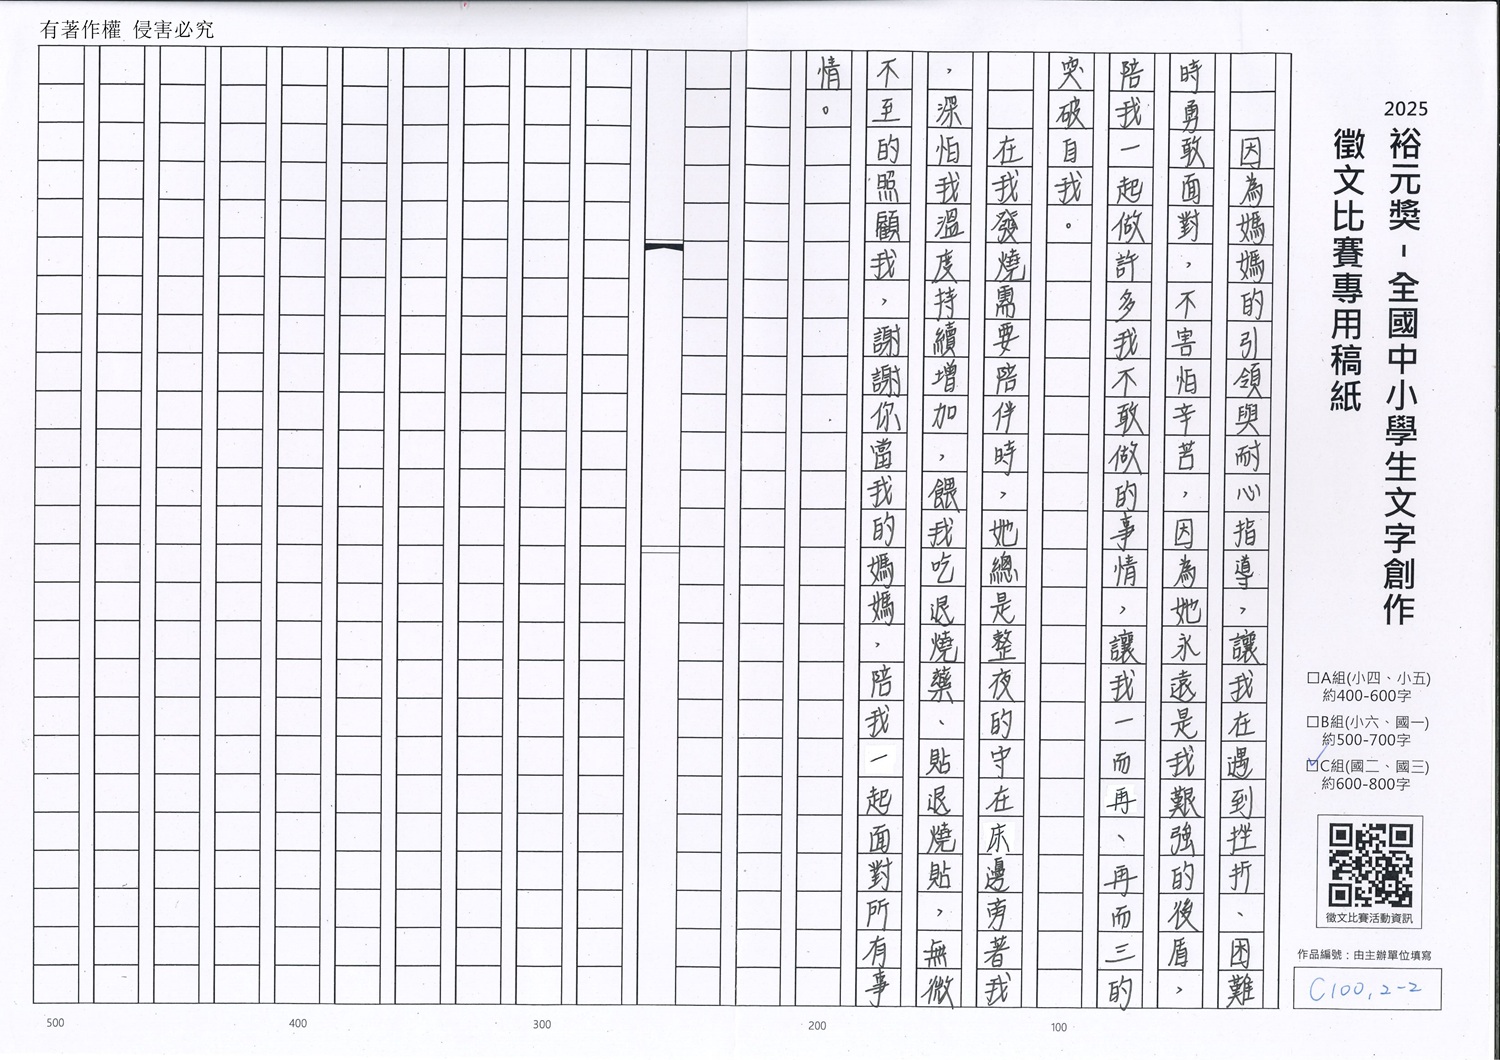 有著作權 侵害必究
2025
裕元獎-全國中小學生文字創作
徵文比賽專用稿紙
□A組(小四、小五)
約400-600字
□B組(小六、國一)
約500-700字
☑C組(國二、國三)
約600-800字
徵文比賽活動資訊
作品編號:由主辦單位填寫
C100,2-2
因為媽媽的引領與耐心指導,讓我在遇到挫折、困難
時勇敢面對,不害怕辛苦,因為她永遠是我艱強的後盾,
陪我一起做許多我不敢做的事情,讓我一而再、再而三的
突破自我。
在我發燒需要陪伴時,她總是整夜的守在床邊旁著我
,深怕我溫度持續增加,餵我吃退燒藥、貼退燒貼,無微
不至的照顧我,謝謝你當我的媽媽,陪我一起面對所有事
情。
100
200
300
400
500